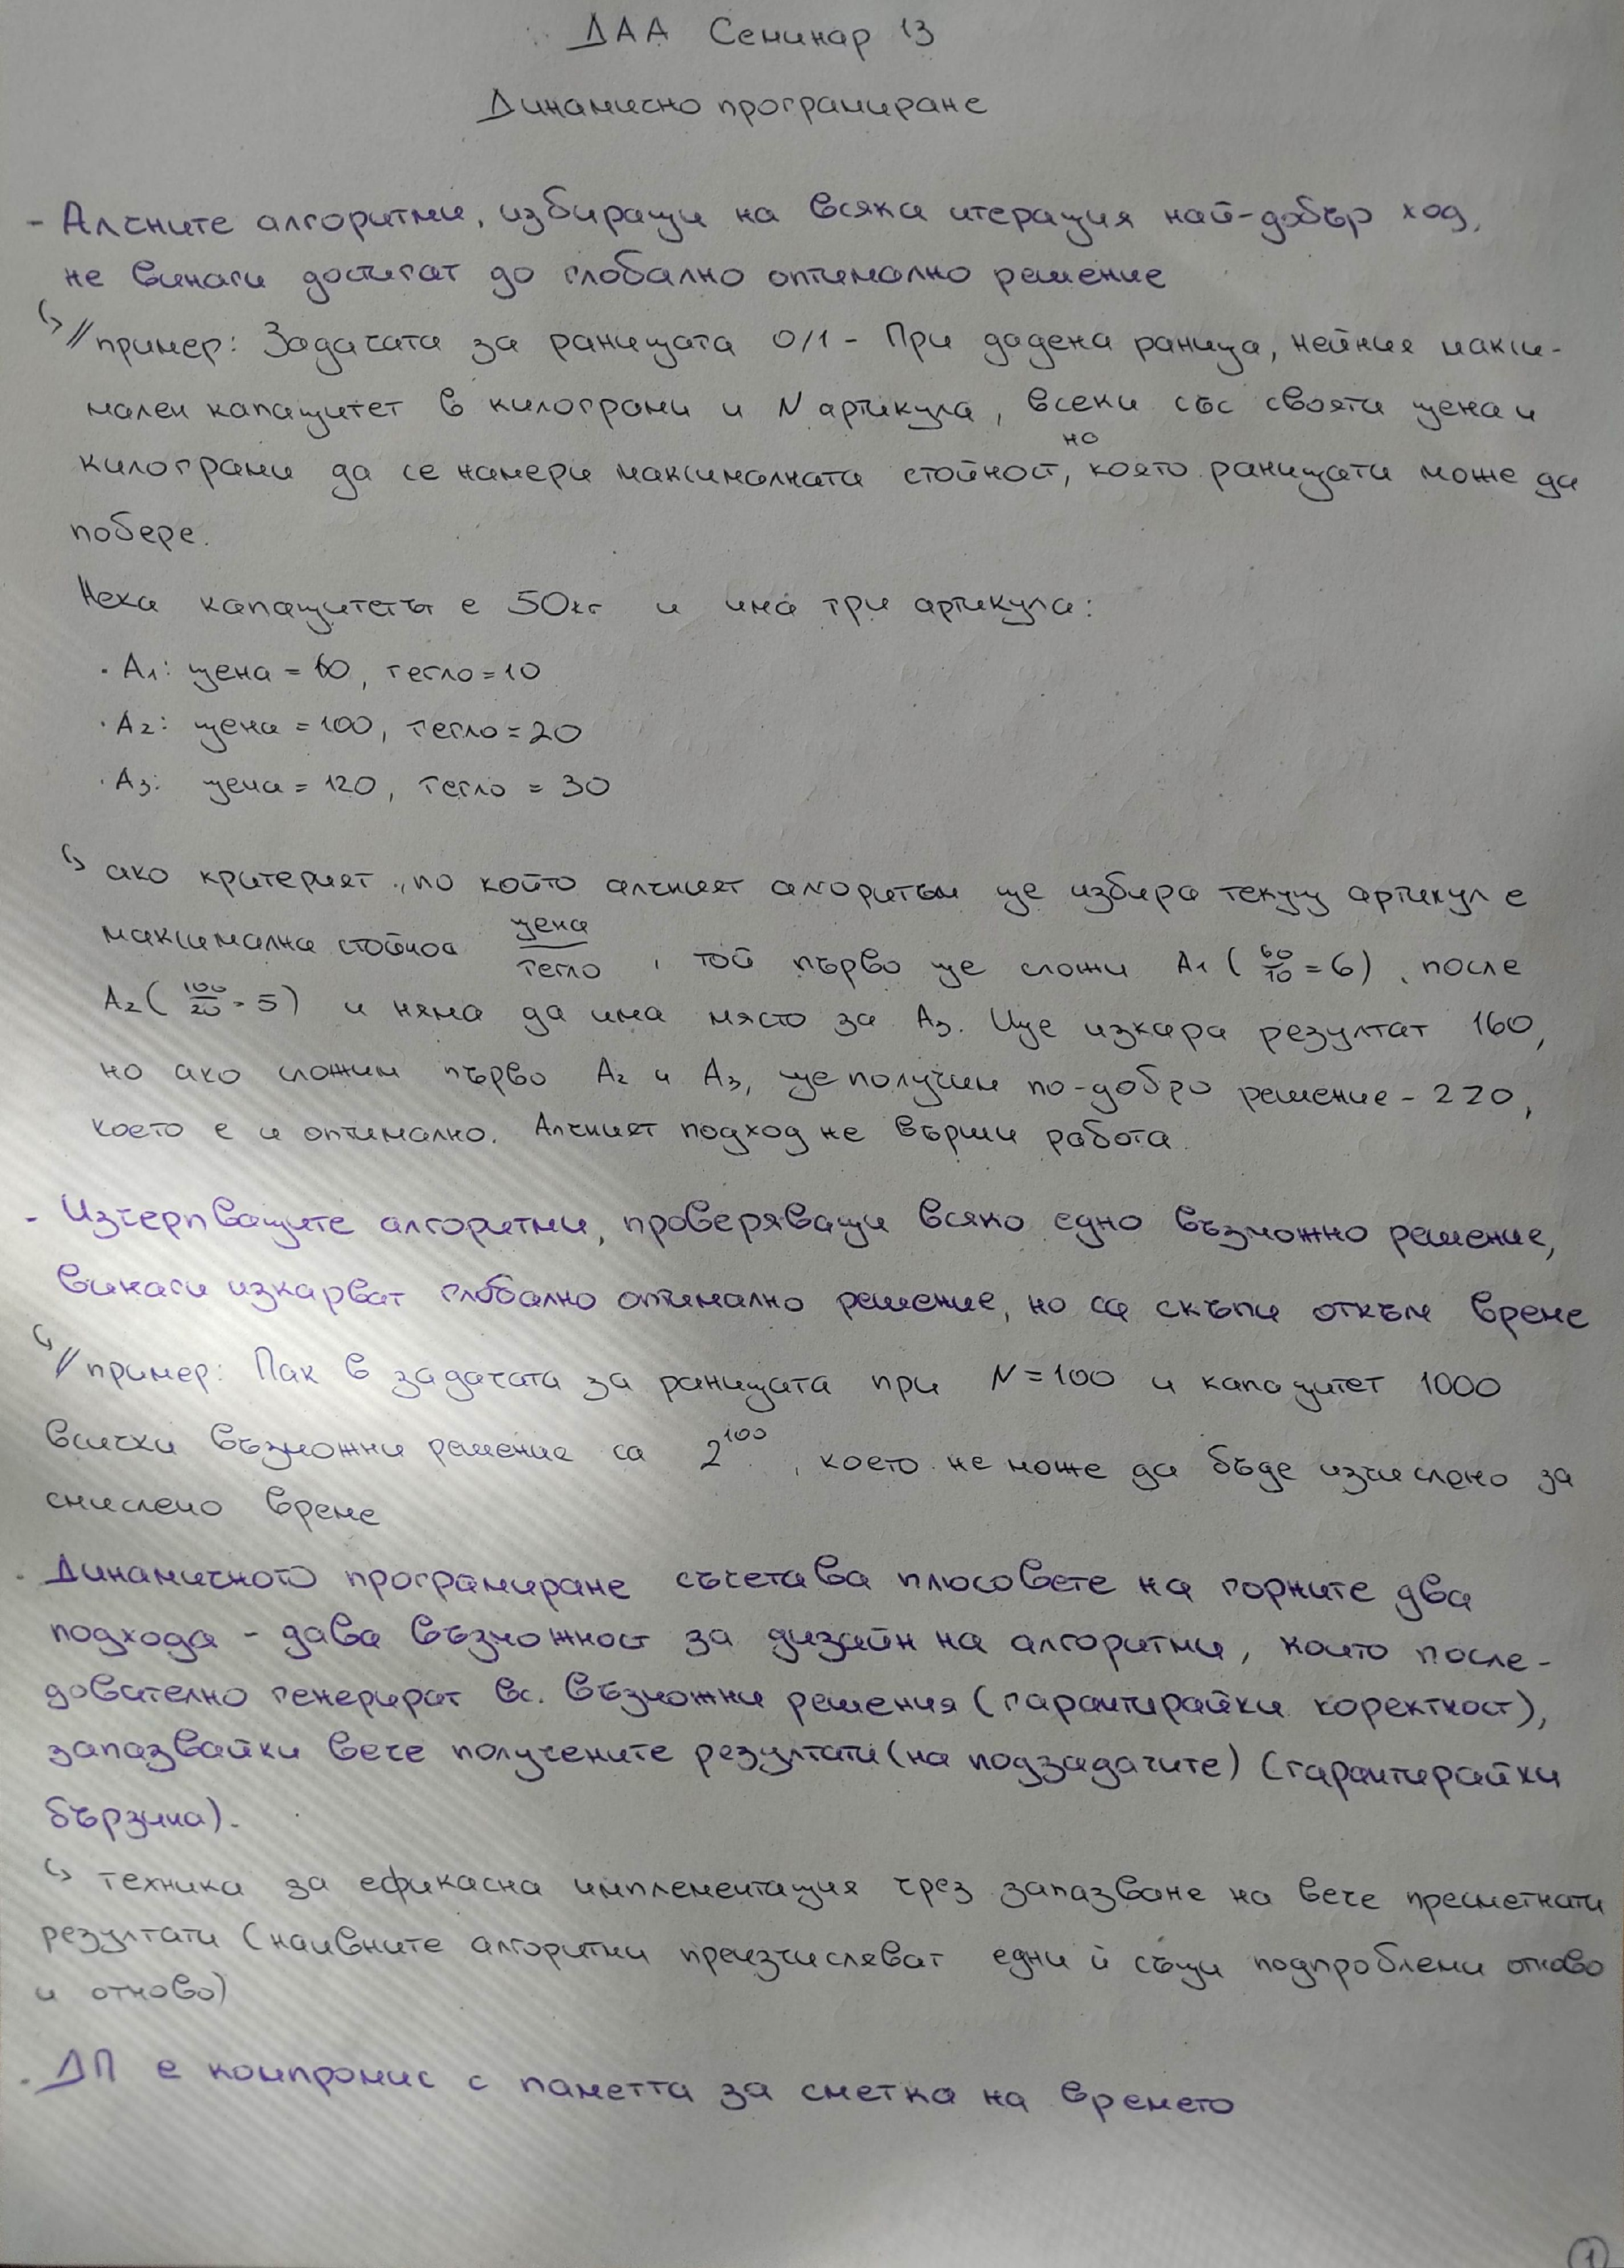 ДАА Семинар 13
Динамично програмиране
- Алчните алгоритми, избиращи на всяка итерация най-добър ход,
не винаги достигат до глобално оптимално решение
↳ // пример: Задачата за раницата 0/1 - При дадена раница, нейния макси-
мален капацитет в килограми и N артикула, всеки със своята цена и
килограми да се намери максималната стойност, на която раницата може да
побере.
Нека капацитетът е 50кг и има три артикула:
· A1: цена = 60, тегло = 10
· A2: цена = 100, тегло = 20
· A3: цена = 120, тегло = 30
↳ ако критерият, по който алчният алгоритъм ще избира текущ артикул е
максимална стойнос цена/тегло, той първо ще сложи A1 (60/10 = 6), после
A2 (100/20 = 5) и няма да има място за A3. Ще изкара резултат 160,
но ако сложим първо A2 и A3, ще получим по-добро решение - 220,
което е и оптимално. Алчният подход не върши работа.
- Изчерпващите алгоритми, проверяващи всяко едно възможно решение,
винаги изкарват глобално оптимално решение, но са скъпи откъм време
↳ // пример: Пак в задачата за раницата при N = 100 и капацитет 1000
всички възможни решение са 2^100, което не може да бъде изчислено за
смислено време
· Динамичното програмиране съчетава плюсовете на горните два
подхода - дава възможност за дизайн на алгоритми, които после-
дователно генерират вс. възможни решения (гарантирайки коректност),
запазвайки вече получените резултати (на подзадачите) (гарантирайки
бързина).
↳ техника за ефикасна имплементация чрез запазване на вече пресметнати
резултати (наивните алгоритми преизчисляват едни и същи подпроблеми отново
и отново)
· ДП е компромис с паметта за сметка на времето
1